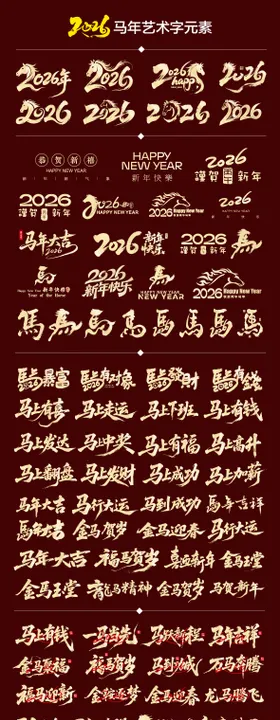 2026 马年艺术字元素
2026年 2026 2026 happy 2026
2026 2026 2026 2026
恭贺新禧 HAPPY NEW YEAR 2026
HAPPY NEW YEAR 新年快樂 謹賀 新年
2026 2026 2026 Happy New Year 2026
謹賀 新年 HAPPY NEW YEAR
马年大吉 2026 2026 新年快乐 2026
2026 謹賀 新年
馬 2026 新年快乐 馬 2026 Happy New Year
Year of the Horse HAPPY NEW YEAR
馬 馬 馬 馬 馬 馬 馬 馬
馬上暴富 馬上有对象 馬上發财 馬上有钱
马上有喜 马上走运 马上下班 马上有钱
马上发达 马上中奖 马上有福 马上高升
马上翻盘 马上发财 马上成功 马上加薪
马年大吉 马行大运 马到成功 馬年吉祥
馬年大吉 金马贺岁 金马迎春 马行大运
马年大吉 福马贺岁 喜迎新年 金马玉堂
金马玉堂 龍马精神 金马贺岁 马贺新年
马上有钱 一马当先 马跃新程 马年吉祥
金马聚福 福马贺岁 马到功成 万马奔腾
福马迎新 金鞍逐梦 金马迎春 龙马腾飞